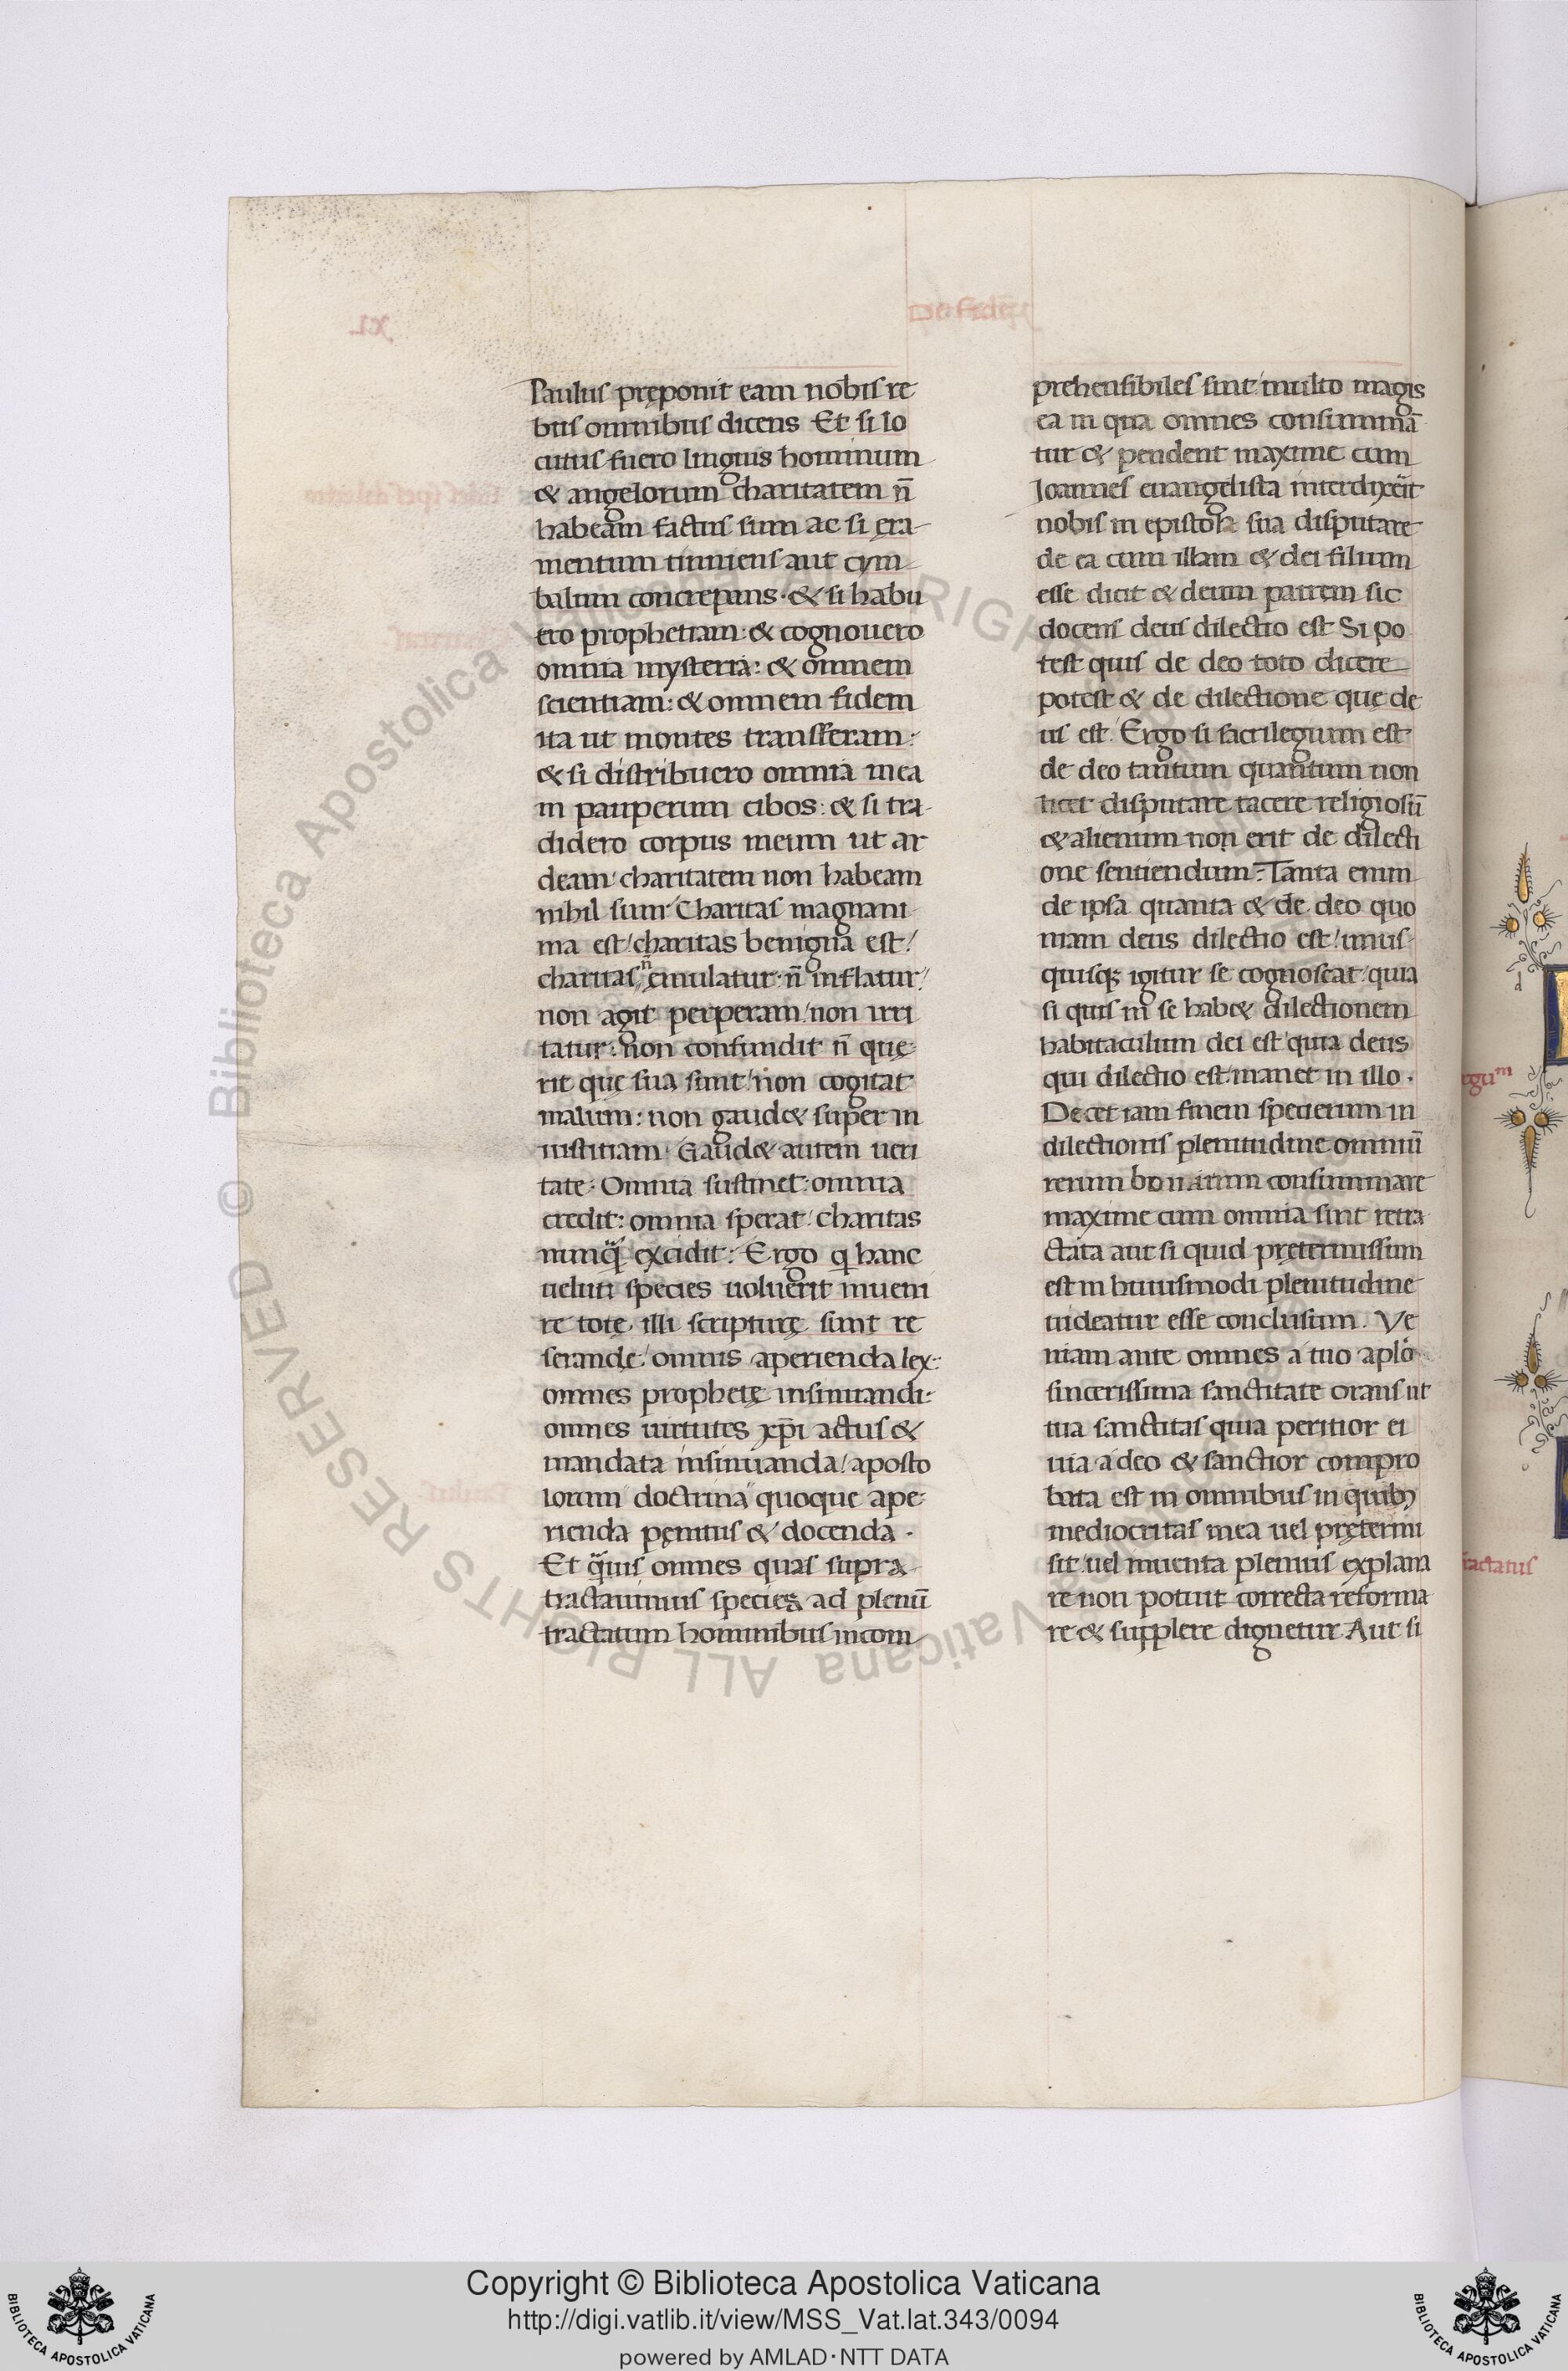 De fide
Paulus pręponit eam nobis re
bus omnibus dicens Et si lo
cutus fuero linguis hominum
& angelorum charitatem n̄
habeam factus sum ac si ęra
mentum tinniens aut cym
balum concrepans· & si habu
ero prophetiam: & cognouero
omnia mysteria: & omnem
scientiam: & omnem fidem
ita ut montes transferam:
& si distribuero omnia mea
in pauperum cibos: & si tra
didero corpus meum ut ar
deam charitatem non habeam
nihil sum Charitas magnani
ma est/ charitas benigna est/
charitas n̄ ęmulatur· n̄ inflatur/
non agit perperam/ non irri
tatur: non confundit n̄ quę
rit quę sua sunt/ non cogitat
malum: non gaud& super in
iustitiam· Gaud& autem ueri
tate· Omnia sustinet· omnia
credit: omnia sperat/ charitas
nunq̈ excidit: Ergo q hanc
ueluti species uoluerit inueni
re totę illi scripturę sunt re
serandę/ omnis aperienda lex:
omnes prophetę insinuandi·
omnes uirtutes xp̄i actus &
mandata insinuanda/ aposto
lorum doctrina quoque ape
rienda pęnitus & docenda ·
Et q̈uis omnes quas supra
tractauimus species ad plenū
tractatum hominibus incom
prehensibiles sint/ multo magis
ea in qua omnes consummā
tur & pendent maxime cum
Joannes euangelista interdixerit
nobis in epistola sua disputare
de ea cum illam & dei filium
esse dicit & deum patrem sic
docens deus dilectio est Si po
test quis de deo toto dicere
potest & de dilectione quę de
us est. Ergo si sacrilegium est
de deo tantum quantum non
licet disputare tacere religiosū
& alienum non erit de dilecti
one sentiendum: Tanta enim
de ipsa quanta & de deo quo
niam deus dilectio est/ unus
quisq; igitur se cognoscat quia
si quis in se hab& dilectionem
habitaculum dei est quia deus
qui dilectio est manet in illo.
Decet iam finem specierum in
dilectionis plenitudine omniū
rerum bonarum consummare
maxime cum omnia sint retra
ctata aut si quid pretermissum
est in huiusmodi plenitudine
uideatur esse conclusum. Ve
niam ante omnes a tuo aplo
sincerissima sanctitate orans ut
tua sanctitas quia peritior ei
uia a deo & sanctior compro
bata est in omnibus in quib;
mediocritas mea uel pręterini
sit uel inuenta plenius explana
re non potuit correcta reforma
re & supplere dignetur Aut si
egum
tractatus
Copyright © Biblioteca Apostolica Vaticana
http://digi.vatlib.it/view/MSS_Vat.lat.343/0094
powered by AMLAD·NTT DATA
BIBLIOTECA APOSTOLICA VATICANA
BIBLIOTECA APOSTOLICA VATICANA
© Biblioteca Apostolica Vaticana ALL RIGHTS RESERVED